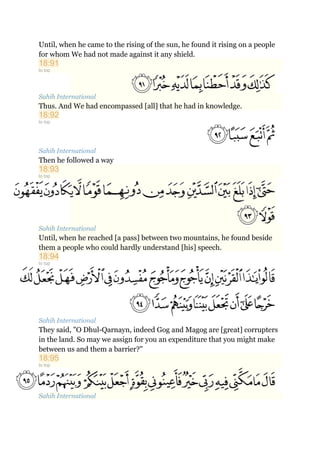 Until, when he came to the rising of the sun, he found it rising on a people
for whom We had not made against it any shield.
18:91
to top
كَذَٰلِكَ وَقَدْ أَحَطْنَا بِمَا لَدَيْهِ خُبْرًا ﴿٩١﴾
Sahih International
Thus. And We had encompassed [all] that he had in knowledge.
18:92
to top
ثُمَّ أَتْبَعَ سَبَبًا ﴿٩٢﴾
Sahih International
Then he followed a way
18:93
to top
حَتَّىٰ إِذَا بَلَغَ بَيْنَ السَّدَّيْنِ وَجَدَ مِن دُونِهِمَا قَوْمًا لَّا يَكَادُونَ يَفْقَهُونَ
قَوْلًا ﴿٩٣﴾
Sahih International
Until, when he reached [a pass] between two mountains, he found beside
them a people who could hardly understand [his] speech.
18:94
to top
قَالُوا يَا ذَا الْقَرْنَيْنِ إِنَّ يَأْجُوجَ وَمَأْجُوجَ مُفْسِدُونَ فِي الْأَرْضِ فَهَلْ نَجْعَلُ لَكَ
خَرْجًا عَلَىٰ أَن تَجْعَلَ بَيْنَنَا وَبَيْنَهُمْ سَدًّا ﴿٩٤﴾
Sahih International
They said, "O Dhul-Qarnayn, indeed Gog and Magog are [great] corrupters
in the land. So may we assign for you an expenditure that you might make
between us and them a barrier?"
18:95
to top
قَالَ مَا مَكَّنِّي فِيهِ رَبِّي خَيْرٌ فَأَعِينُونِي بِقُوَّةٍ أَجْعَلْ بَيْنَكُمْ وَبَيْنَهُمْ رَدْمًا ﴿٩٥﴾
Sahih International